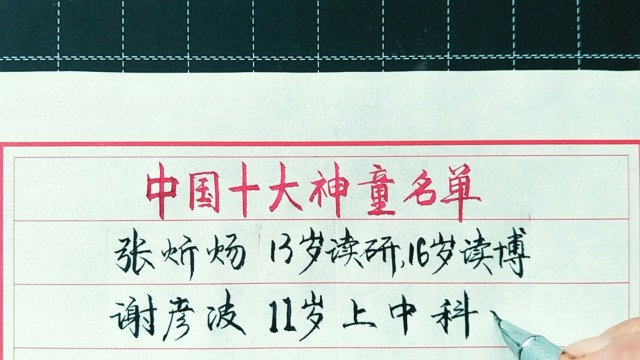 中国十大神童名单
张炘炀 13岁读研,16岁读博
谢彦波 11岁上中科